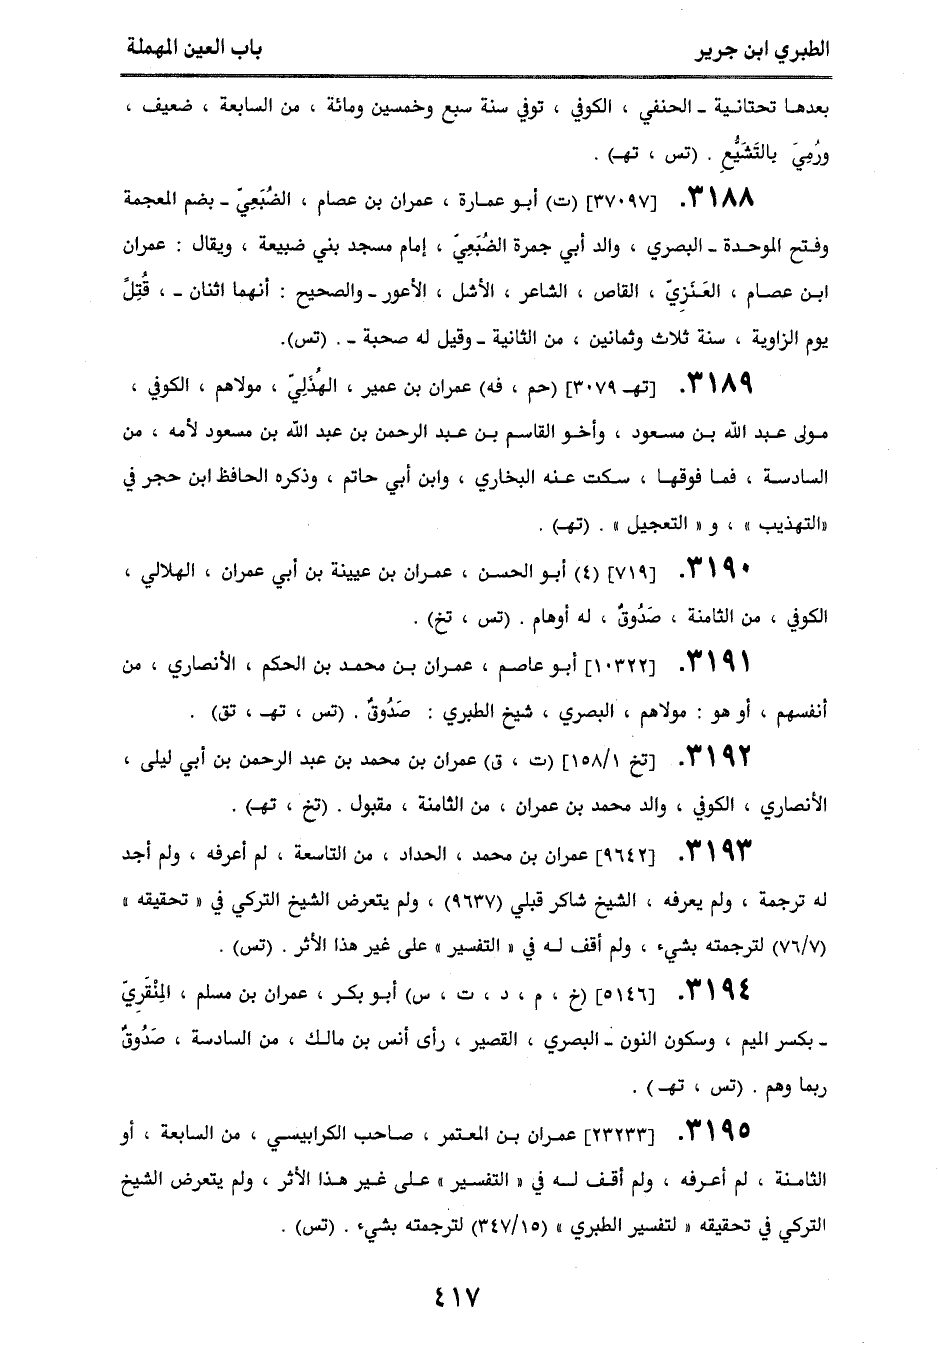 الطبري ابن جرير
باب العين المهملة
بعدها تحتانية ـ الحنفي ، الكوفي ، توفي سنة سبع وخمسين ومائة ، من السابعة ، ضعيف ،
ورُمِيَ بالتَشَيُّعِ . (تس ، تهـ) .
٣١٨٨. [٣٧٠٩٧] (ت) أبو عمارة ، عمران بن عصام ، الضُبَعِيّ ـ بضم المعجمة
وفتح الموحدة ـ البصري ، والد أبي جمرة الضُبَعِيّ ، إمام مسجد بني ضبيعة ، ويقال : عمران
ابن عصام ، العَنَزِيّ ، القاص ، الشاعر ، الأشل ، الأعور ـ والصحيح : أنهما اثنان ـ ، قُتِلَ
يوم الزاوية ، سنة ثلاث وثمانين ، من الثانية ـ وقيل له صحبة ـ . (تس).
٣١٨٩. [تهـ ٣٠٧٩] (حم ، فه) عمران بن عمير ، الهُذَلِيّ ، مولاهم ، الكوفي ،
مولى عبد الله بن مسعود ، وأخو القاسم بن عبد الرحمن بن عبد الله بن مسعود لأمه ، من
السادسة ، فما فوقها ، سكت عنه البخاري ، وابن أبي حاتم ، وذكره الحافظ ابن حجر في
«التهذيب » ، و « التعجيل » . (تهـ) .
٣١٩٠. [٧١٩] (٤) أبو الحسن ، عمران بن عيينة بن أبي عمران ، الهلالي ،
الكوفي ، من الثامنة ، صَدُوقٌ ، له أوهام . (تس ، تخ) .
٣١٩١. [١٠٣٢٢] أبو عاصم ، عمران بن محمد بن الحكم ، الأنصاري ، من
أنفسهم ، أو هو : مولاهم ، البصري ، شيخ الطبري : صَدُوقٌ . (تس ، تهـ ، تق) .
٣١٩٢. [تخ ١٥٨/١] (ت ، ق) عمران بن محمد بن عبد الرحمن بن أبي ليلى ،
الأنصاري ، الكوفي ، والد محمد بن عمران ، من الثامنة ، مقبول . (تخ ، تهـ) .
٣١٩٣. [٩٦٤٢] عمران بن محمد ، الحداد ، من التاسعة ، لم أعرفه ، ولم أجد
له ترجمة ، ولم يعرفه ، الشيخ شاكر قبلي (٩٦٣٧) ، ولم يتعرض الشيخ التركي في « تحقيقه »
(٧٦/٧) لترجمته بشيء ، ولم أقف له في « التفسير » على غير هذا الأثر . (تس) .
٣١٩٤. [٥١٤٦] (خ ، م ، د ، ت ، س) أبو بكر ، عمران بن مسلم ، المِنْقَرِيّ
ـ بكسر الميم ، وسكون النون ـ البصري ، القصير ، رأى أنس بن مالك ، من السادسة ، صَدُوقٌ
ربما وهم . (تس ، تهـ ) .
٣١٩٥. [٢٣٢٣٣] عمران بن المعتمر ، صاحب الكرابيسي ، من السابعة ، أو
الثامنة ، لم أعرفه ، ولم أقف له في « التفسير » على غير هذا الأثر ، ولم يتعرض الشيخ
التركي في تحقيقه « لتفسير الطبري » (٣٤٧/١٥) لترجمته بشيء . (تس) .
٤١٧